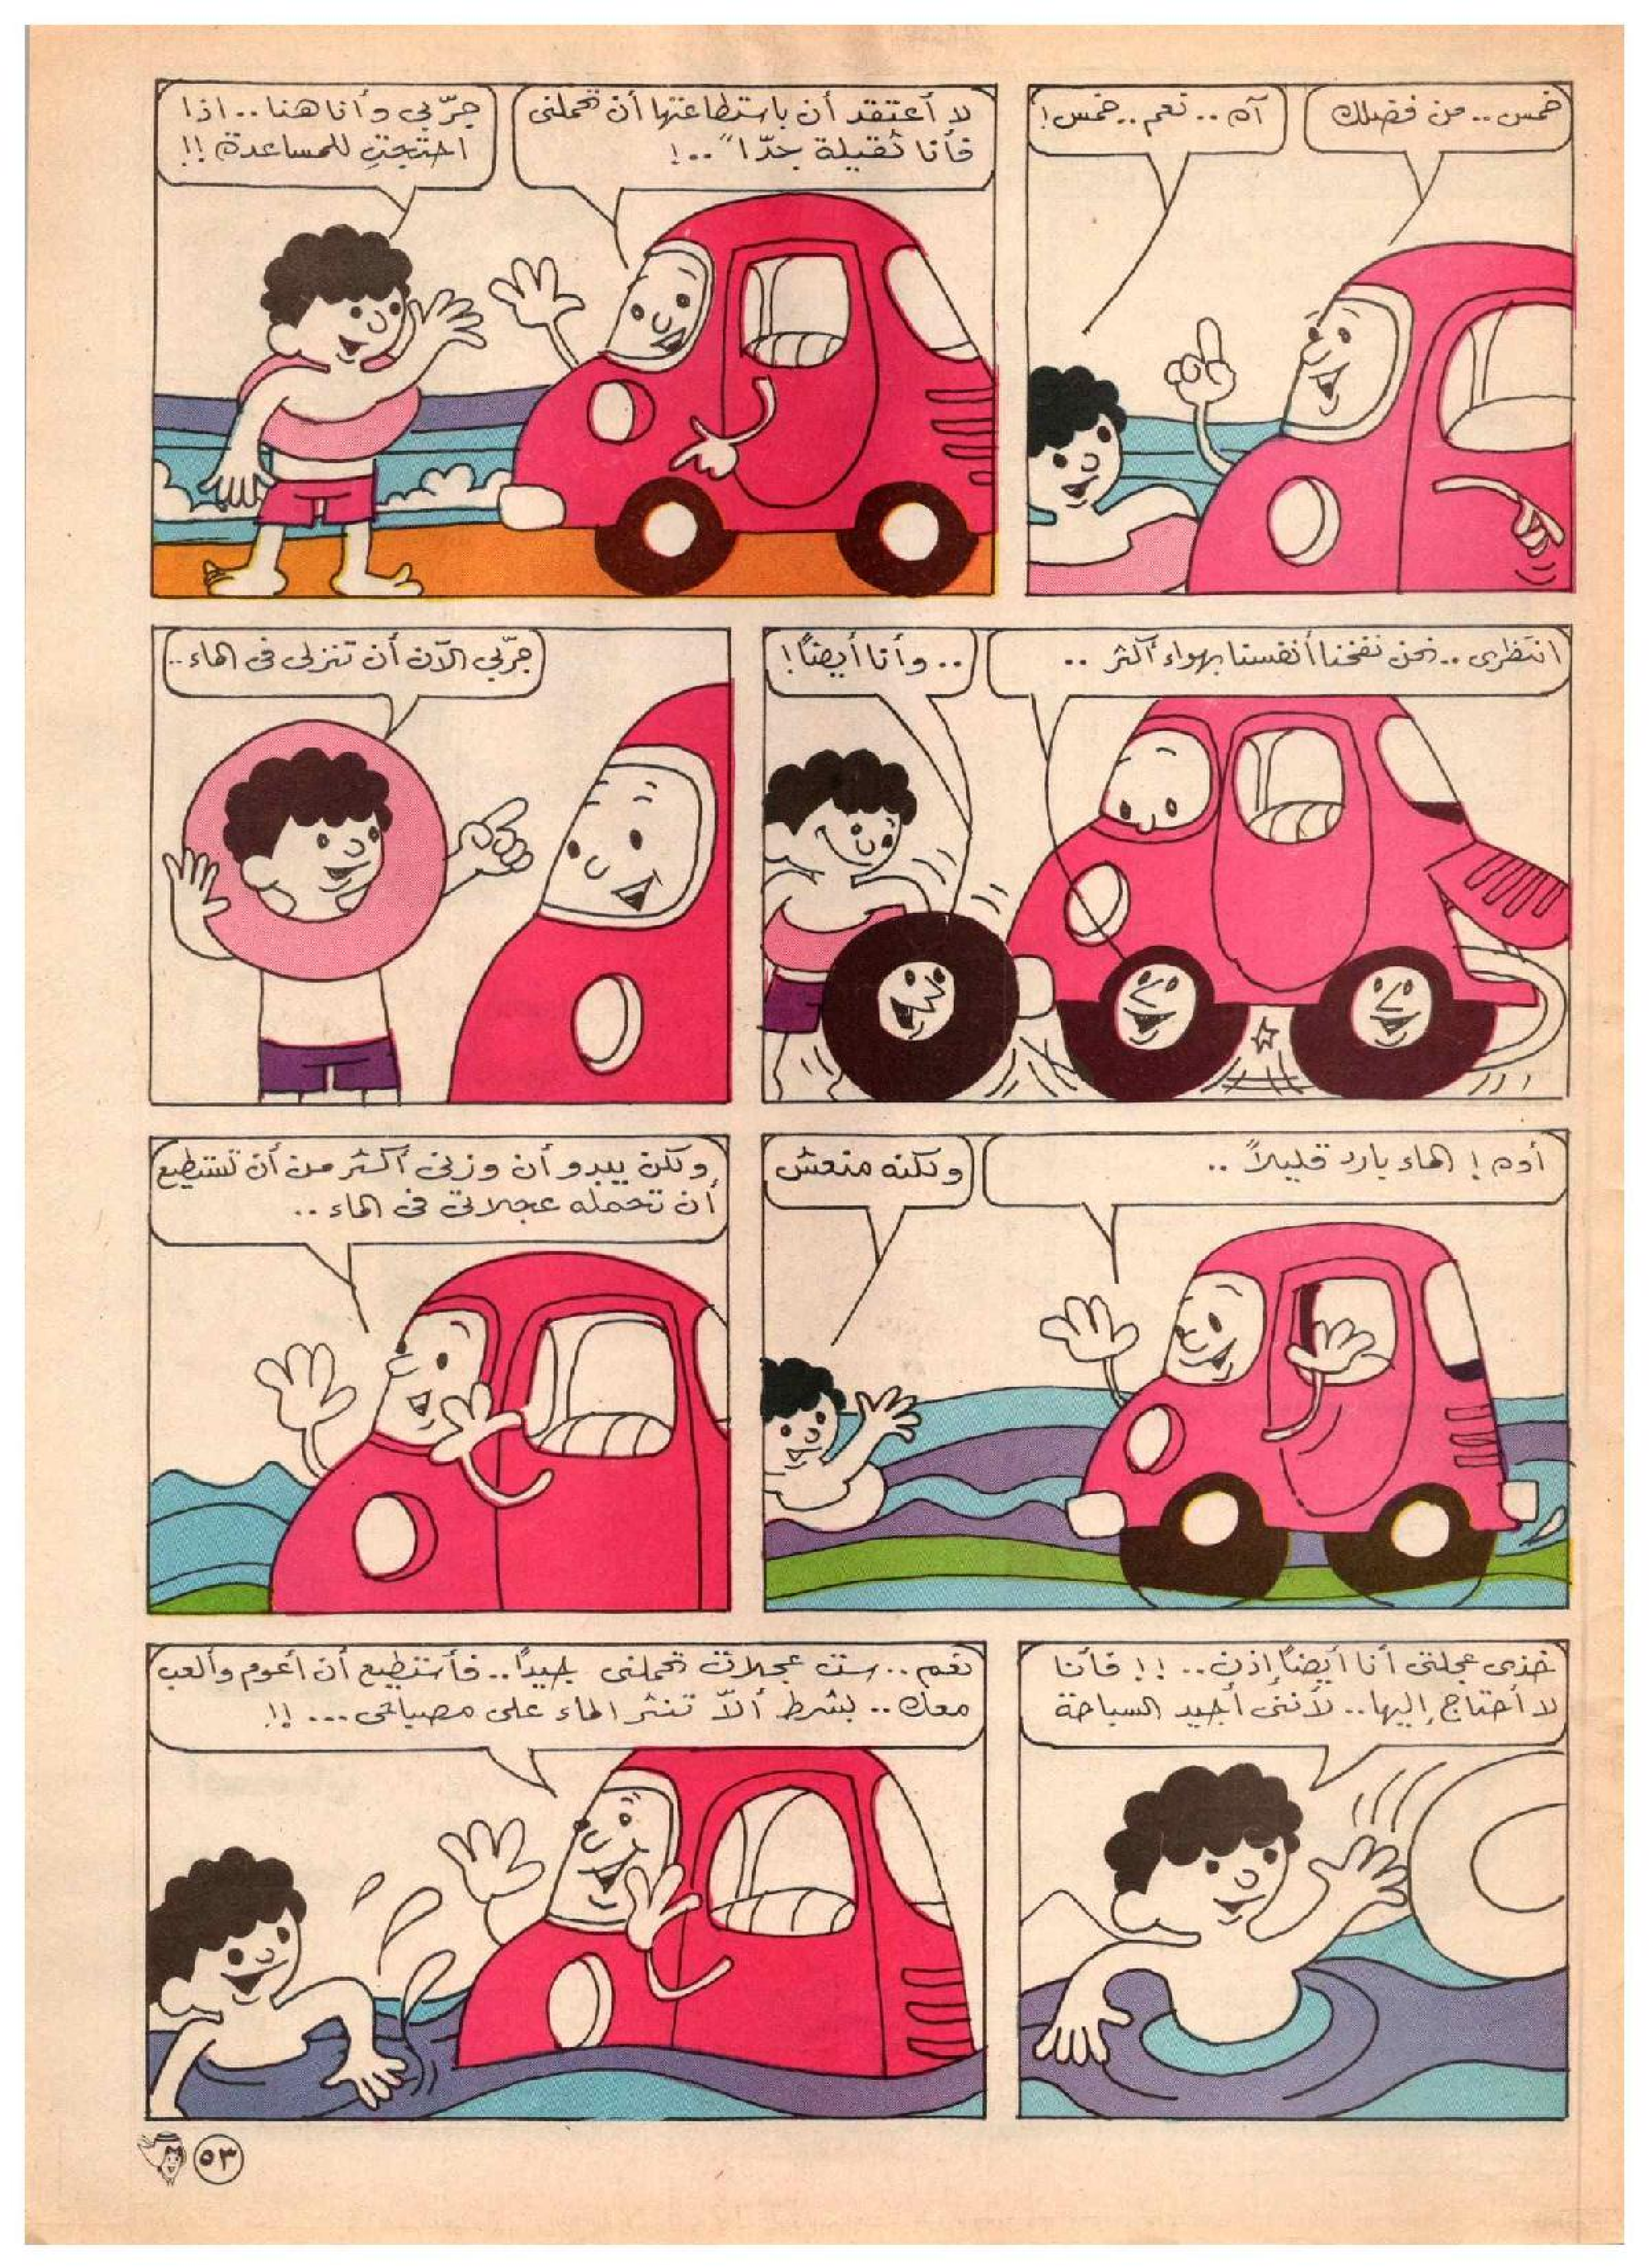 خمس.. من فضلك
آه.. نعم.. خمس!
لا أعتقد أن باستطاعتها أن تحملنى
فأنا ثقيلة جدّا"..!
جرّبي وأنا هنا.. اذا
احتجتِ للمساعدة!!
انتظرى.. نحن نفخنا أنفسنا بهواء أكثر..
.. وأنا أيضاً!
جرّبي الآن أن تنزلى فى الماء..
أوه! الماء بارد قليلاً..
ولكنه منعش
ولكن يبدو أن وزنى أكثر من أن تستطيع
أن تحمله عجلاتى فى الماء..
خذى عجلتى أنا أيضاً إذن..!! فأنا
لا أحتاج إليها.. لأننى أجيد السباحة
نعم.. ست عجلات تحملنى جيداً.. فأستطيع أن أعوم وألعب
معك.. بشرط ألاّ تنثر الماء على مصباحى...!!
٥٣